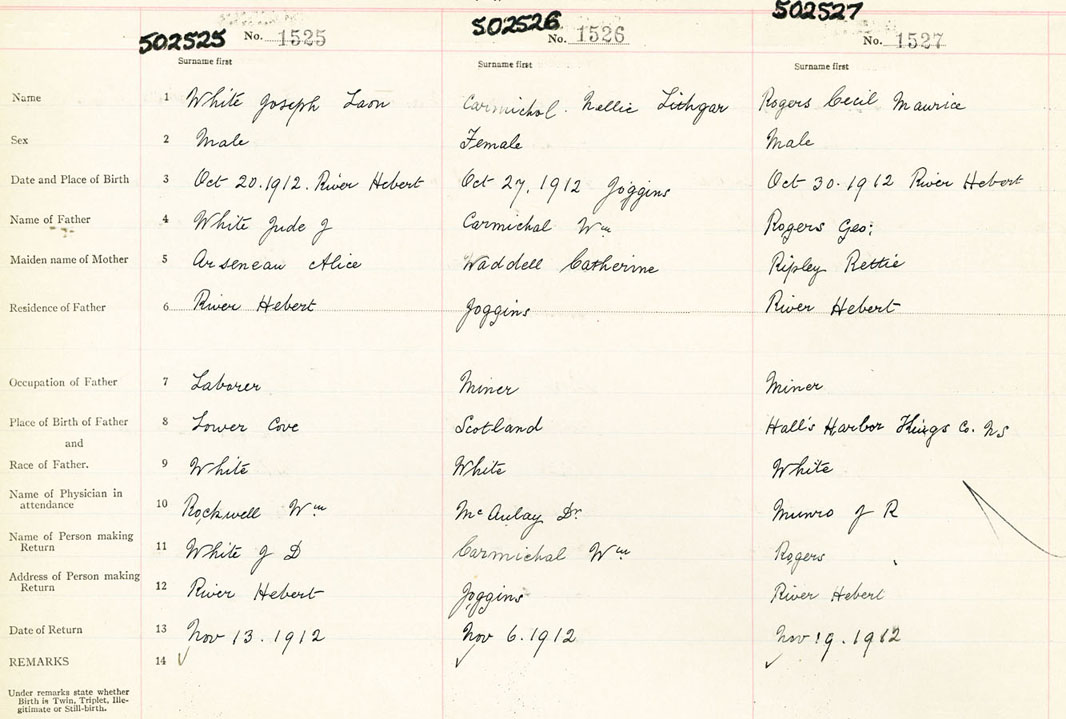 502525 No. 1525 502526 No. 1526 502527 No. 1527
Surname first Surname first Surname first
Name 1 White Joseph Laon Carmichol. Nellie Lithgar Rogers Cecil Maurice
Sex 2 Male Female Male
Date and Place of Birth 3 Oct 20.1912. River Hebert Oct 27, 1912 Joggins Oct 30.1912 River Hebert
Name of Father 4 White Jude J Carmichal Wm Rogers Geo:
Maiden name of Mother 5 Arseneau Alice Waddell Catherine Ripley Rettie
Residence of Father 6 River Hebert Joggins River Hebert
Occupation of Father 7 Laborer Miner Miner
Place of Birth of Father 8 Lower Cove Scotland Hall's Harbor Kings Co. NS
and
Race of Father. 9 White White White
Name of Physician in
attendance 10 Rockwell Wm McAulay Dr Munro J R
Name of Person making
Return 11 White J D Carmichal Wm Rogers
Address of Person making
Return 12 River Hebert Joggins River Hebert
Date of Return 13 Nov 13.1912 Nov 6.1912 Nov 19.1912
REMARKS 14
Under remarks state whether
Birth is Twin, Triplet, Ille-
gitimate or Still-birth.